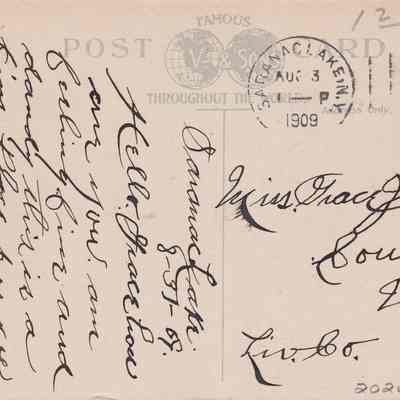 12
FAMOUS
POST CARD
V. & Son
THROUGHOUT THE WORLD
Address Only.
SARANAC LAKE, N.Y.
AUG 3
P
1909
Saranac Lake.
8-31-09.
Hello Grace How
are you. am
feeling fine and
dandy this is a
fine place
Miss. Grace J
Sou
Liv. Co.
202